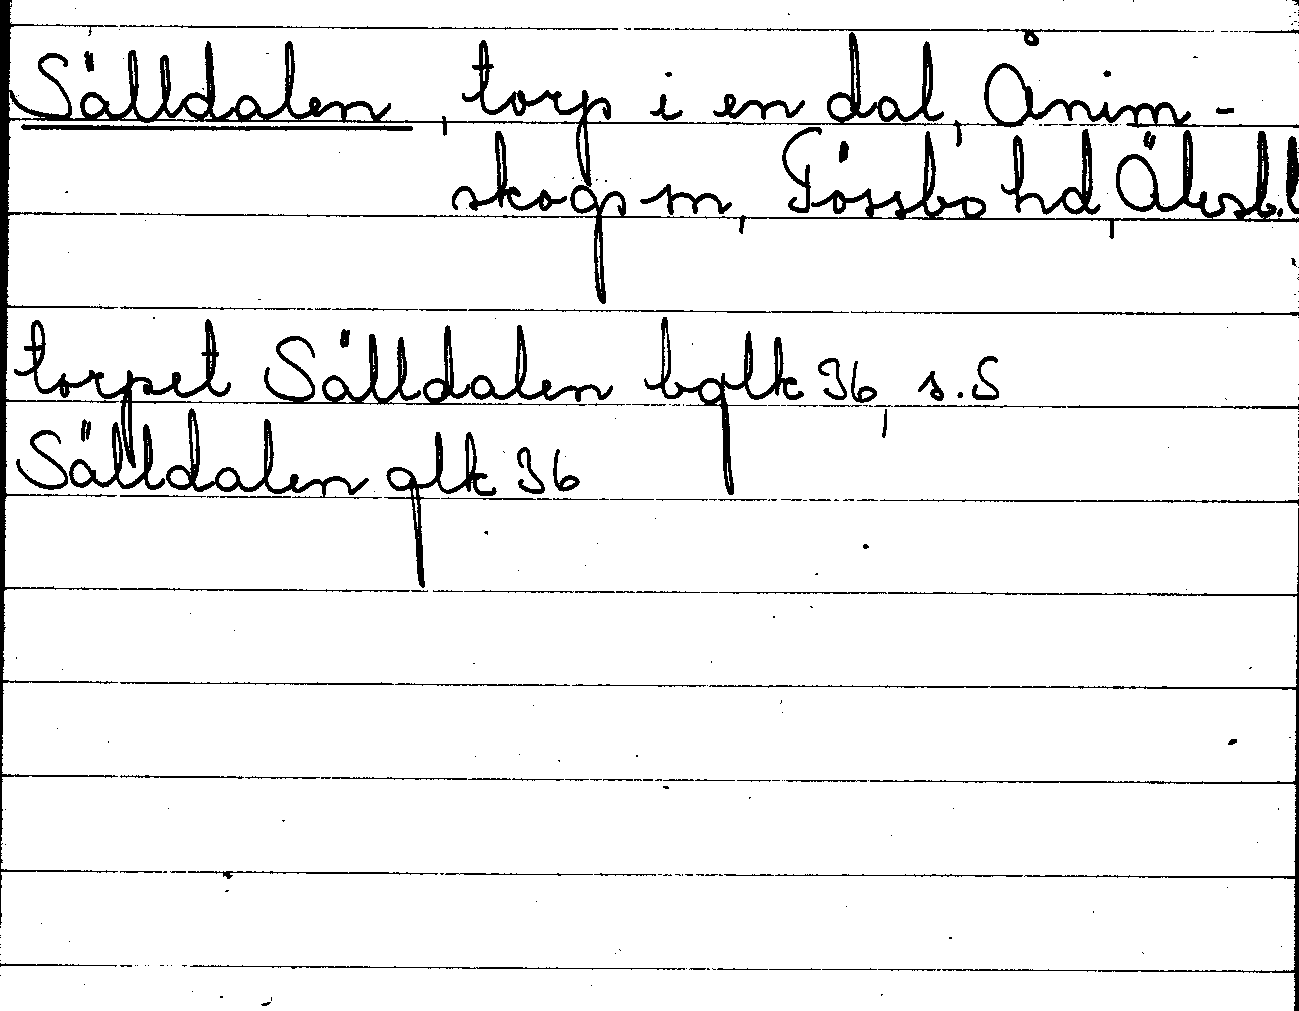 Sälldalen, torp i en dal, Ånim-
skogs sn, Tössbo hd, Älvsb.l
torpet Sälldalen bglk 36, s. 5
Sälldalen glk 36